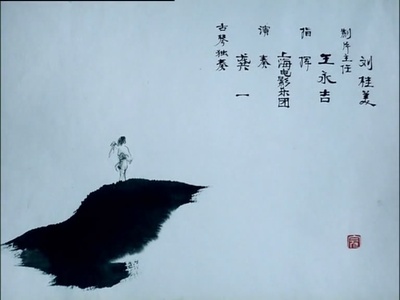 制片主任
刘桂美
指挥
王永吉
演奏
上海电影乐团
古琴独奏
龚一